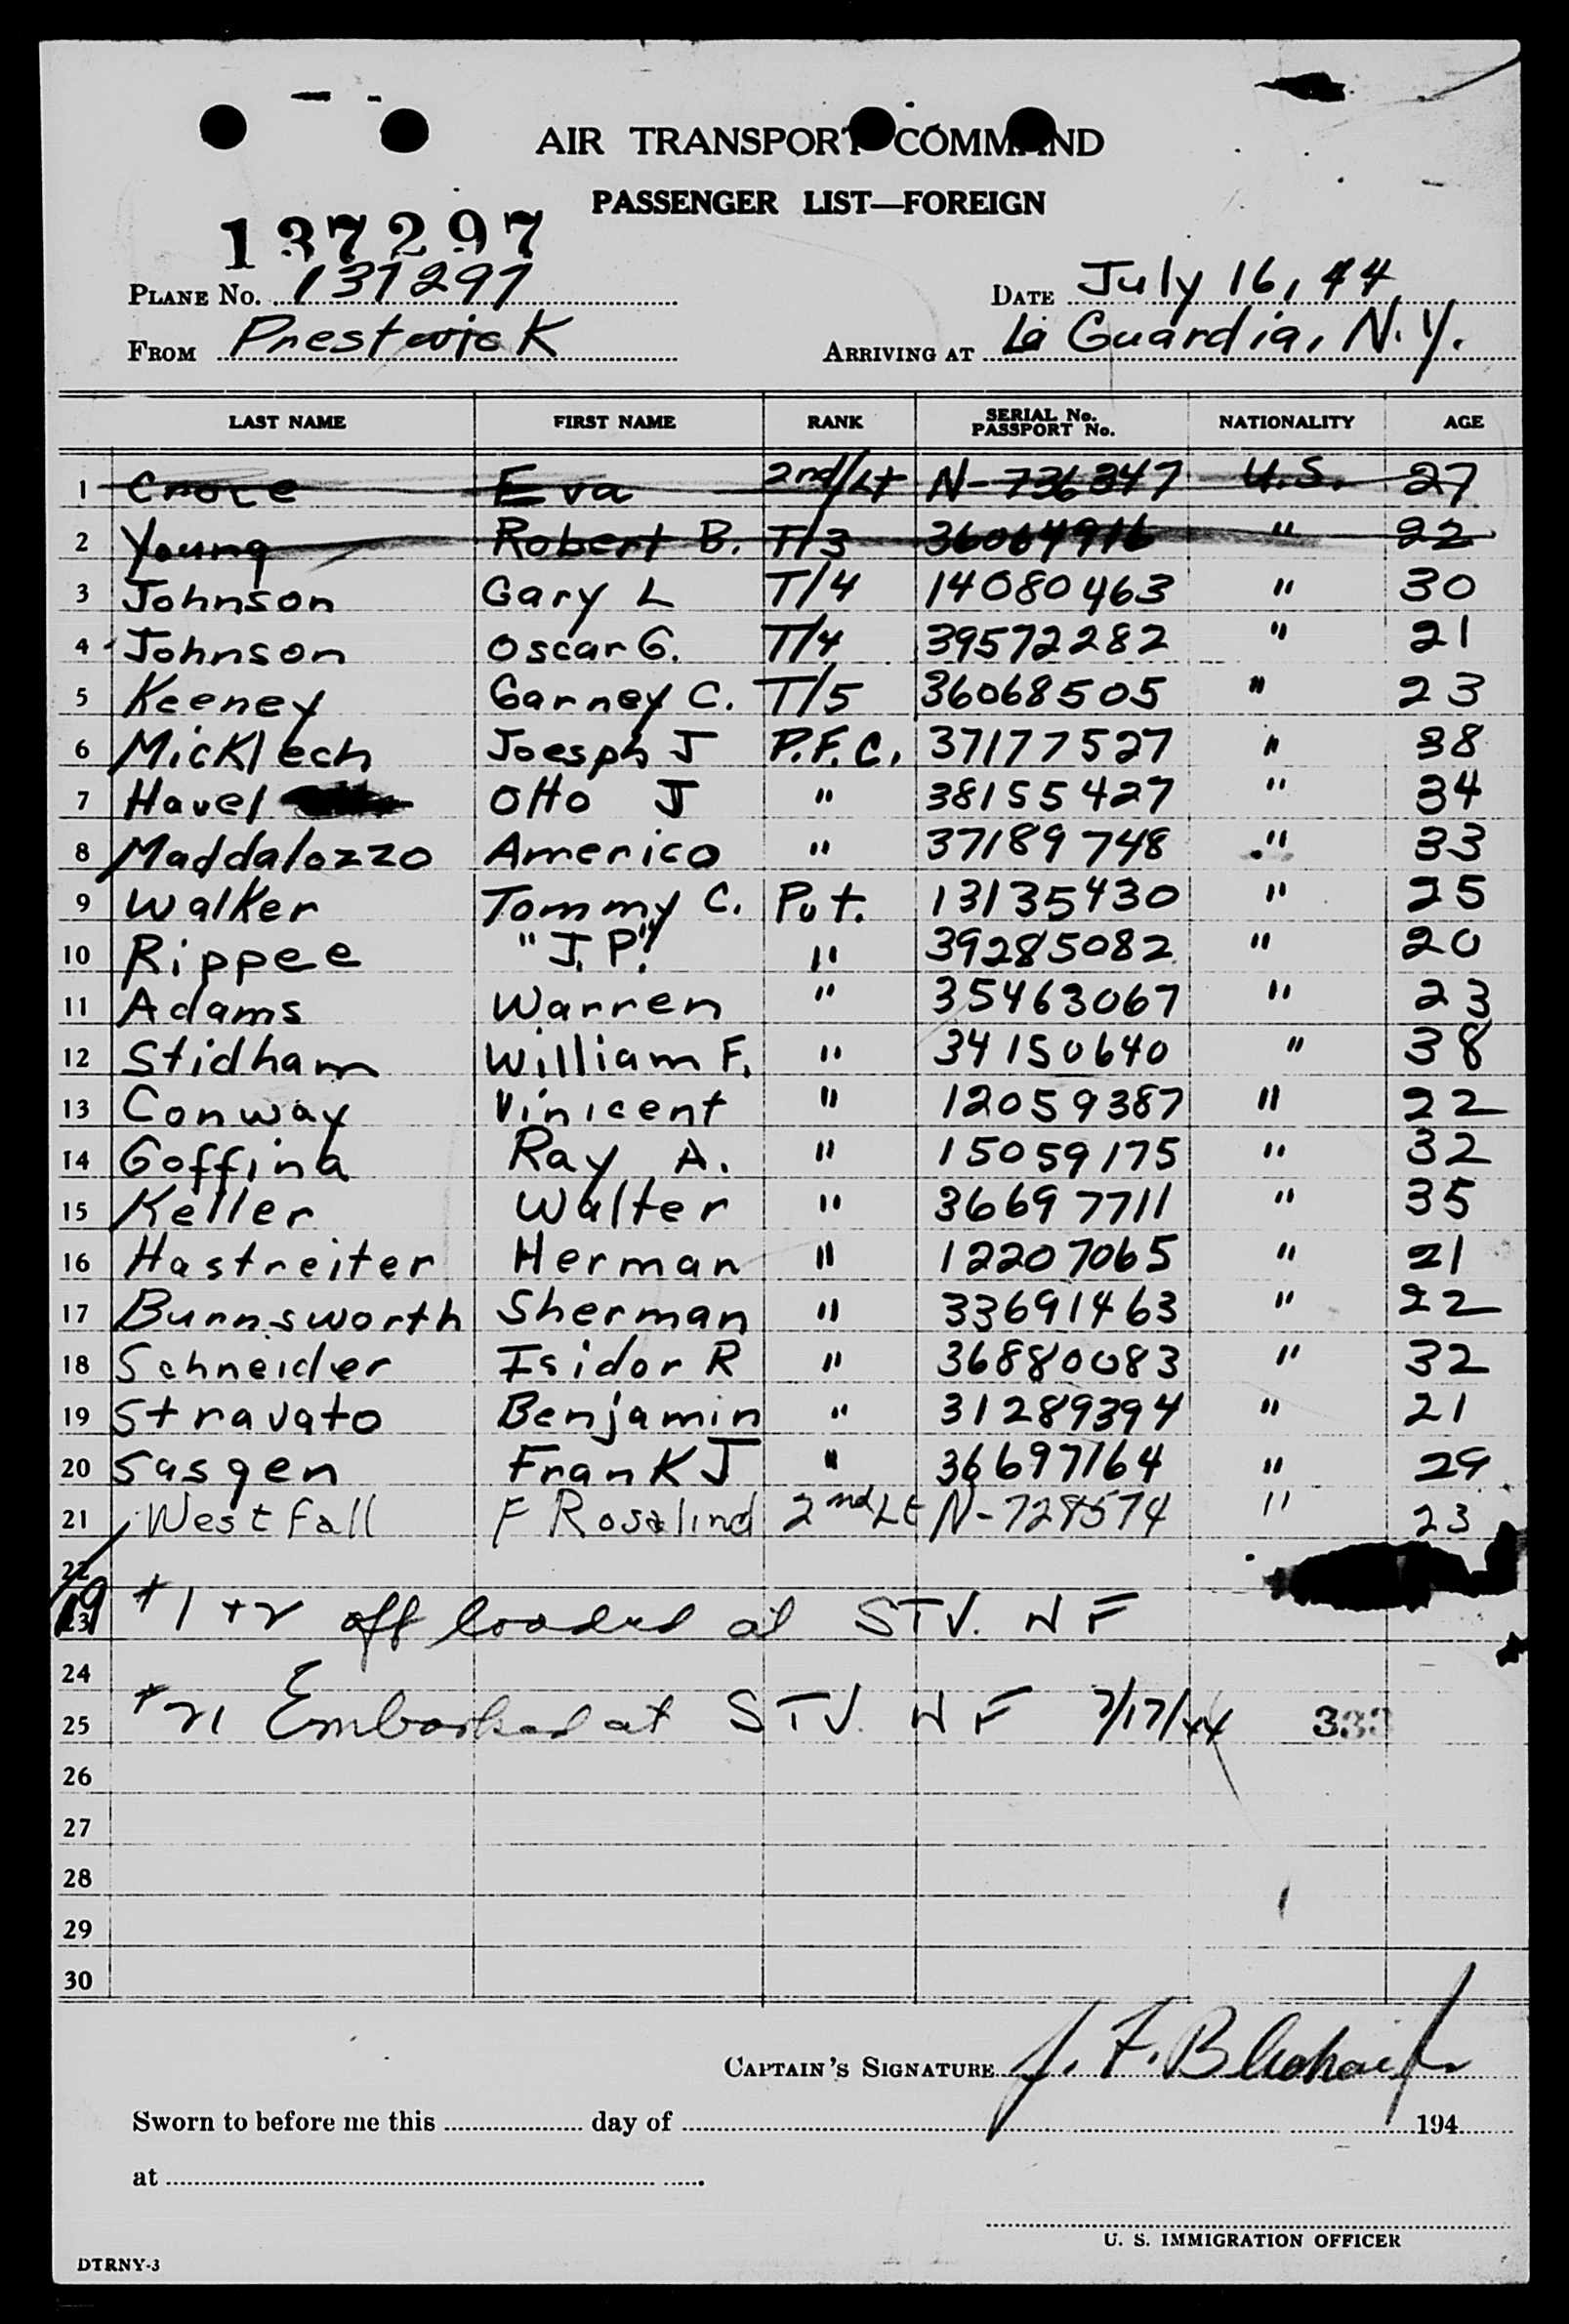 AIR TRANSPORT COMMAND
PASSENGER LIST—FOREIGN
137297
PLANE No. 137297 DATE July 16, 44
FROM Prestwick ARRIVING AT La Guardia, N.Y.
LAST NAME FIRST NAME RANK SERIAL No. PASSPORT No. NATIONALITY AGE
1 Croce Eva 2nd/Lt N-736347 U.S. 27
2 Young Robert B. T/3 36064916 " 22
3 Johnson Gary L T/4 14080463 " 30
4 Johnson Oscar G. T/4 39572282 " 21
5 Keeney Garney C. T/5 36068505 " 23
6 Micklech Joesph J P.F.C. 37177527 " 38
7 Havel Otto J " 38155427 " 34
8 Maddalozzo Americo " 37189748 " 33
9 Walker Tommy C. Pvt. 13135430 " 25
10 Rippee "J.P." " 39285082 " 20
11 Adams Warren " 35463067 " 23
12 Stidham William F. " 34150640 " 38
13 Conway Vinicent " 12059387 " 22
14 Goffina Ray A. " 15059175 " 32
15 Keller Walter " 36697711 " 35
16 Hastreiter Herman " 12207065 " 21
17 Burnsworth Sherman " 33691463 " 22
18 Schneider Isidor R " 36880083 " 32
19 Stravato Benjamin " 31289394 " 21
20 Sasgen Frank J " 36697164 " 29
21 Westfall F Rosalind 2nd Lt N-728574 " 23
22
19 #1 + 2 off loaded at STV. NF
24
25 #21 Embarked at STV. NF 7/17/44 333
26
27
28
29
30
CAPTAIN'S SIGNATURE J. F.
Sworn to before me this day of 194
at
U. S. IMMIGRATION OFFICER
DTRNY-3